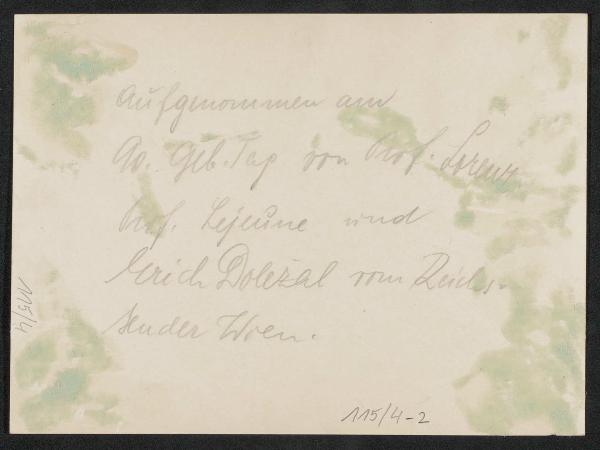 Aufgenommen am
90. Geb. Tag von Prof. Lorenz
Prof. Lejeune und
Erich Dolezal vom Reichs-
sender Wien.
115/4
115/4-2